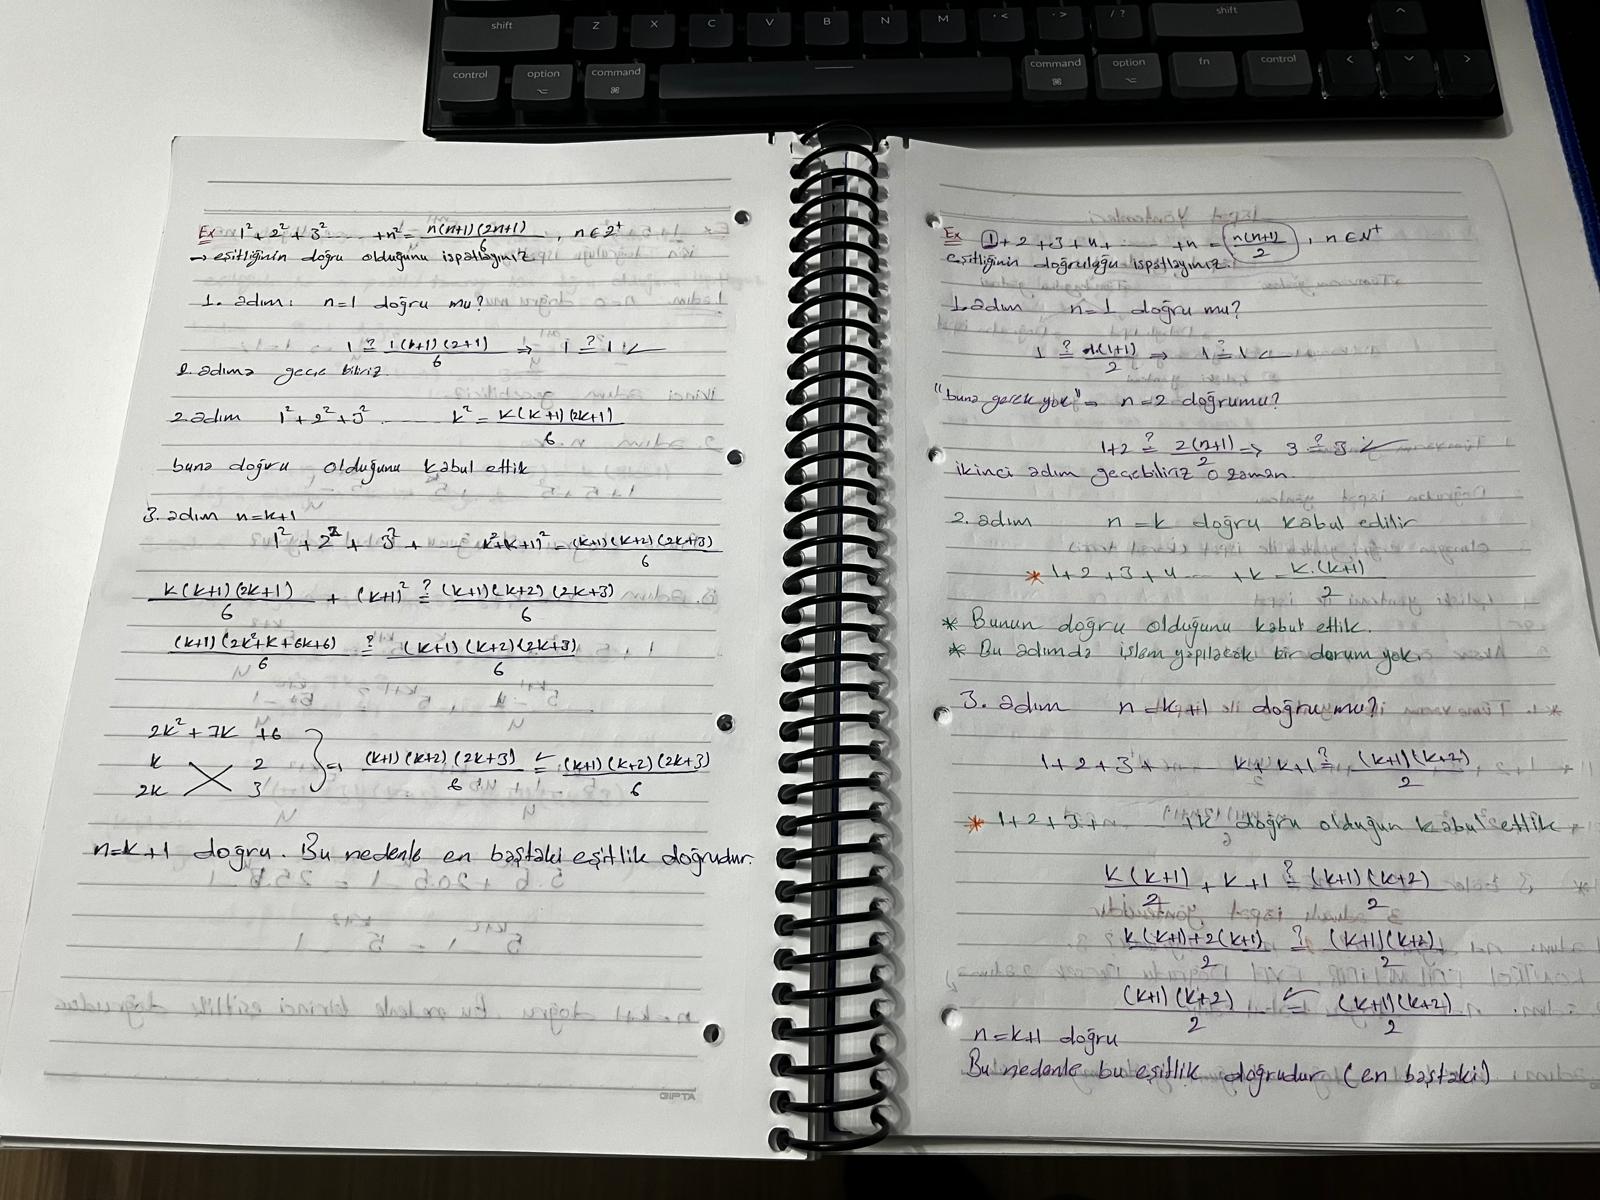 shift
Z X C V B N M . < . > / ?
shift
^
control option command
command option fn control < ⌄ >
Ex 1² + 2² + 3² ..... +n² = n(n+1)(2n+1)/6 , n ∈ Z⁺
→ eşitliğinin doğru olduğunu ispatlayınız.
1. adım: n=1 doğru mu?
1 ≟ 1(1+1)(2+1)/6 ⇒ 1 ≟ 1 ✓
2. adıma geçebiliriz
2. adım 1² + 2² + 3² ........ k² = k(k+1)(2k+1)/6
buna doğru olduğunu kabul ettik
3. adım n=k+1
1² + 2² + 3² + .... k²+(k+1)² = (k+1)(k+2)(2k+3)/6
k(k+1)(2k+1)/6 + (k+1)² ≟ (k+1)(k+2)(2k+3)/6
(k+1)(2k²+k+6k+6)/6 ≟ (k+1)(k+2)(2k+3)/6
2k² + 7k +6
k 2
2k 3
} ⇒ (k+1)(k+2)(2k+3)/6 = (k+1)(k+2)(2k+3)/6
n=k+1 doğru. Bu nedenle en baştaki eşitlik doğrudur.
GIPTA
Ex 1 + 2 + 3 + 4 + ...... +n = n(n+1)/2 , n ∈ N⁺
eşitliğinin doğruluğu ispatlayınız.
1. adım n=1 doğru mu?
1 ≟ 1(1+1)/2 ⇒ 1 ≟ 1 ✓
"buna gerek yok" → n=2 doğrumu?
1+2 ≟ 2(n+1)/2 ⇒ 3 ≟ 3 ✓
ikinci adım geçebiliriz o zaman.
2. adım n=k doğru kabul edilir
* 1+2+3+4 ..... +k = k.(k+1)/2
* Bunun doğru olduğunu kabul ettik.
* Bu adımda işlem yapılacak bir durum yok.
3. adım n=k+1 doğru mu?
1+2+3+ ..... k+k+1 ≟ (k+1)(k+2)/2
* 1+2+3+ ..... +k doğru olduğun kabul ettik
k(k+1)/2 + k+1 ≟ (k+1)(k+2)/2
k(k+1)+2(k+1)/2 ≟ (k+1)(k+2)/2
(k+1)(k+2)/2 = (k+1)(k+2)/2
n=k+1 doğru
Bu nedenle bu eşitlik doğrudur (en baştaki)